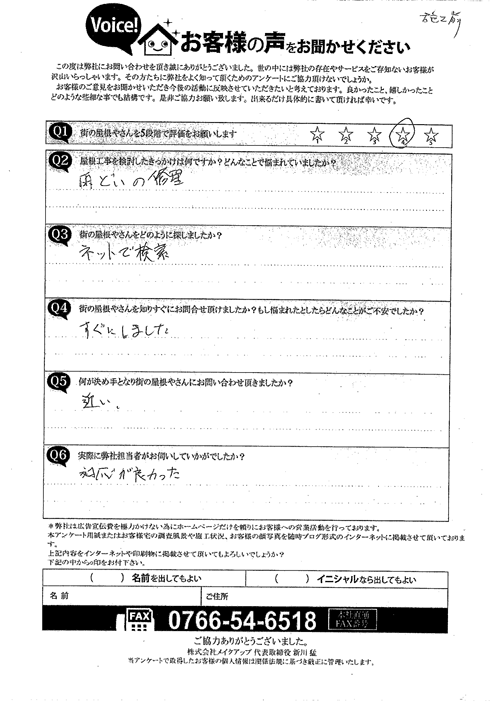 施工前
Voice!
お客様の声をお聞かせください
この度は弊社にお問い合わせを頂き誠にありがとうございました。世の中には弊社の存在やサービスをご存知ないお客様が
沢山いらっしゃいます。その方たちに弊社をよく知って頂くためのアンケートにご協力頂けないでしょうか。
お客様のご意見をお聞かせいただき今後の活動に反映させていただきたいと考えております。良かったこと、嬉しかったこと
どのような些細な事でも結構です。是非ご協力お願い致します。出来るだけ具体的に書いて頂ければ幸いです。
Q1 街の屋根やさんを5段階で評価をお願いします 1 2 3 4 5
Q2 屋根工事を検討したきっかけは何ですか？どんなことで悩まれていましたか？
雨どいの修理
Q3 街の屋根やさんをどのように探しましたか？
ネットで検索
Q4 街の屋根やさんを知りすぐにお問合せ頂けましたか？もし悩まれたとしたらどんなことがご不安でしたか？
すぐにしました
Q5 何が決め手となり街の屋根やさんにお問い合わせ頂きましたか？
近い、
Q6 実際に弊社担当者がお伺いしていかがでしたか？
対応が良かった
＊弊社は広告宣伝費を極力かけない為にホームページだけを頼りにお客様への営業活動を行っております。
本アンケート用紙またはお客様宅の調査風景や施工状況、お客様の顔写真を随時ブログ形式のインターネットに掲載させて頂いておりま
す。
上記内容をインターネットや印刷物に掲載させて頂いてもよろしいでしょうか？
下記の中から○印をお付下さい。
（　　）名前を出してもよい （　　）イニシャルなら出してもよい
名 前 ご住所
FAX 0766-54-6518 本社直通 FAX番号
ご協力ありがとうございました。
株式会社メイクアップ 代表取締役 新川 猛
当アンケートで取得したお客様の個人情報は関係法規に基づき厳正に管理いたします。